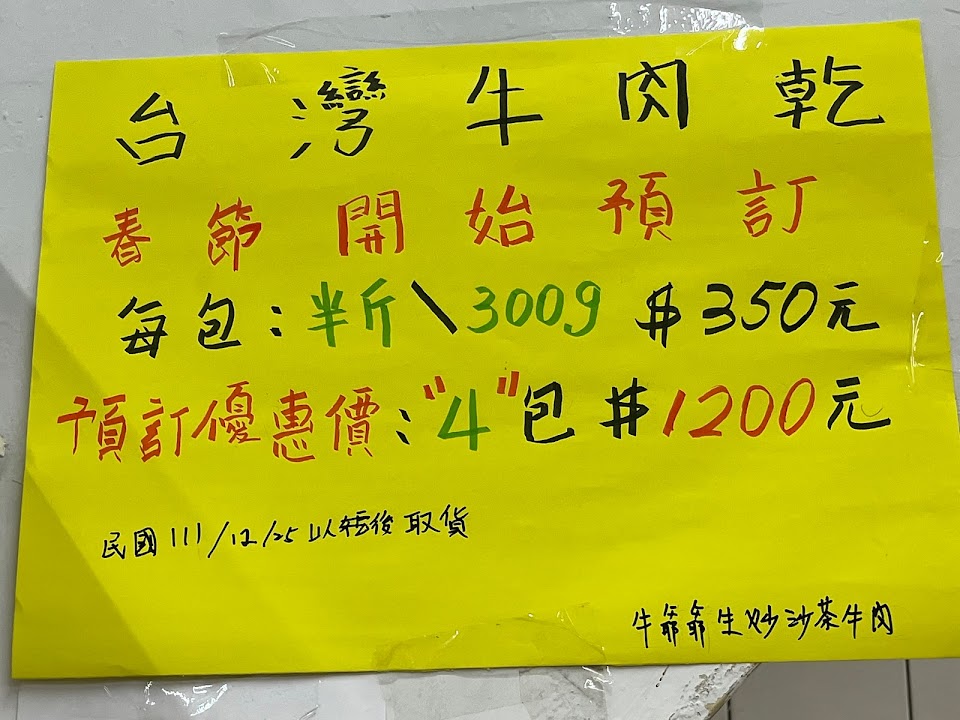 台灣牛肉乾
春節開始預訂
每包：半斤\300g $350元
預訂優惠價："4"包 $1200元
民國111/12/25以後取貨
牛犇犇生炒沙茶牛肉